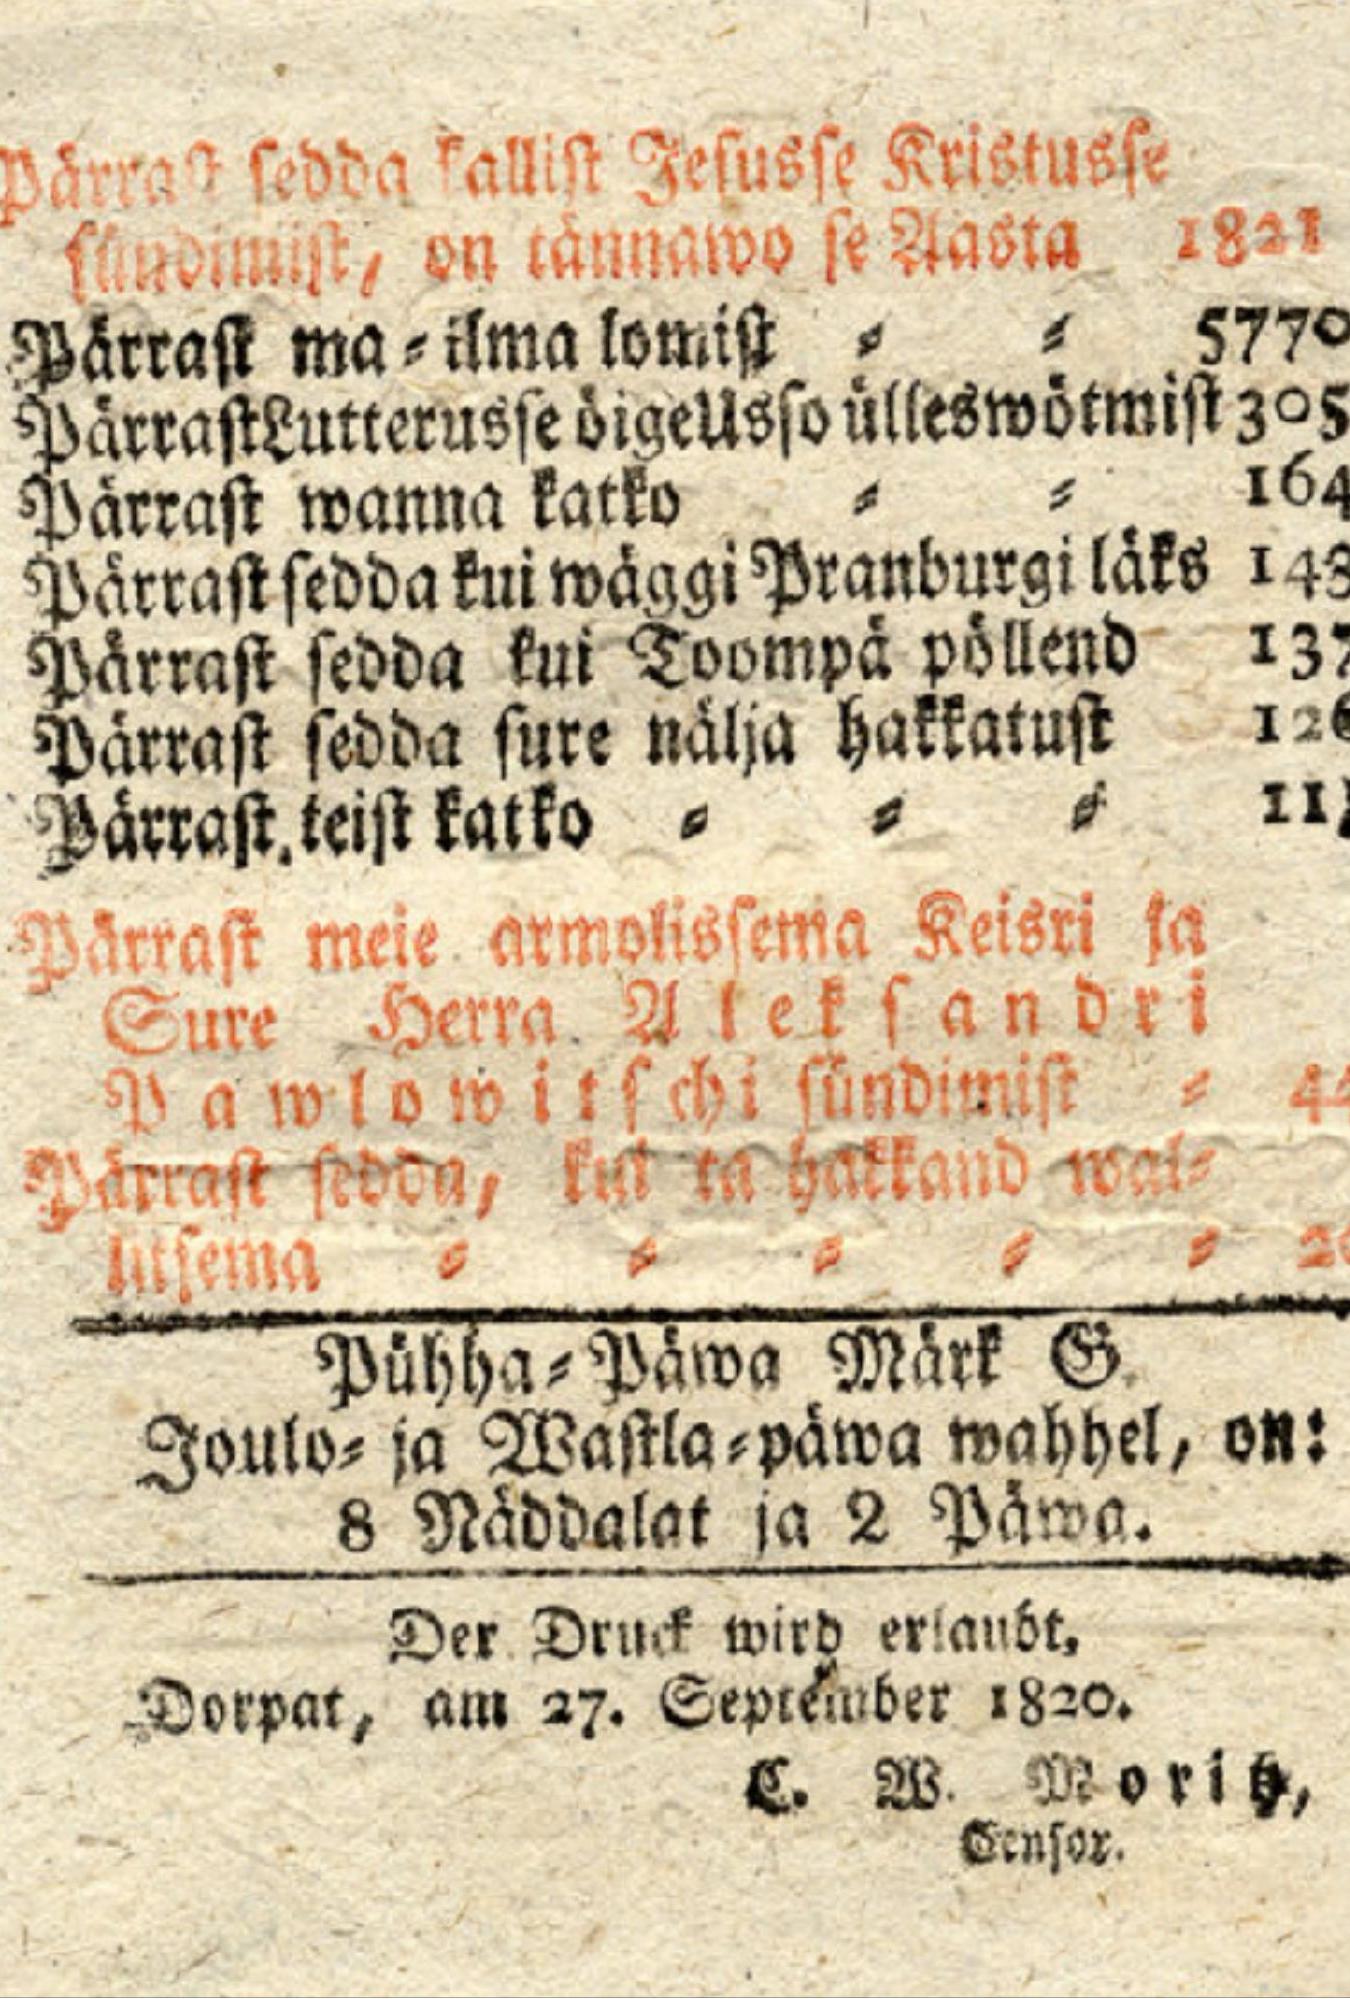 Pärrast sedda kallist Jesusse Kristusse
sündimist, on tännawo se Aasta 1821
Pärrast ma-ilma lomist - - 5770
Pärrast Lutterusse öige Usso ülleswötmist 305
Pärrast wanna katko - - 164
Pärrast sedda kui wäggi Pranburgi läks 143
Pärrast sedda kui Toompä pöllend 137
Pärrast sedda sure nälja hakkatust 126
Pärrast teist katko - - - 11
Pärrast meie armolissema Keisri ja
Sure Herra Aleksandri
Pawlowitschi sündimist - 44
Pärrast sedda, kui ta hakkand wal-
litsema - - - - - 20
Pühha-Päwa Märk G.
Joulo- ja Wastla-päwa wahhel, on:
8 Näddalat ja 2 Päwa.
Der Druck wird erlaubt.
Dorpat, am 27. September 1820.
C. W. Moritz,
Censor.